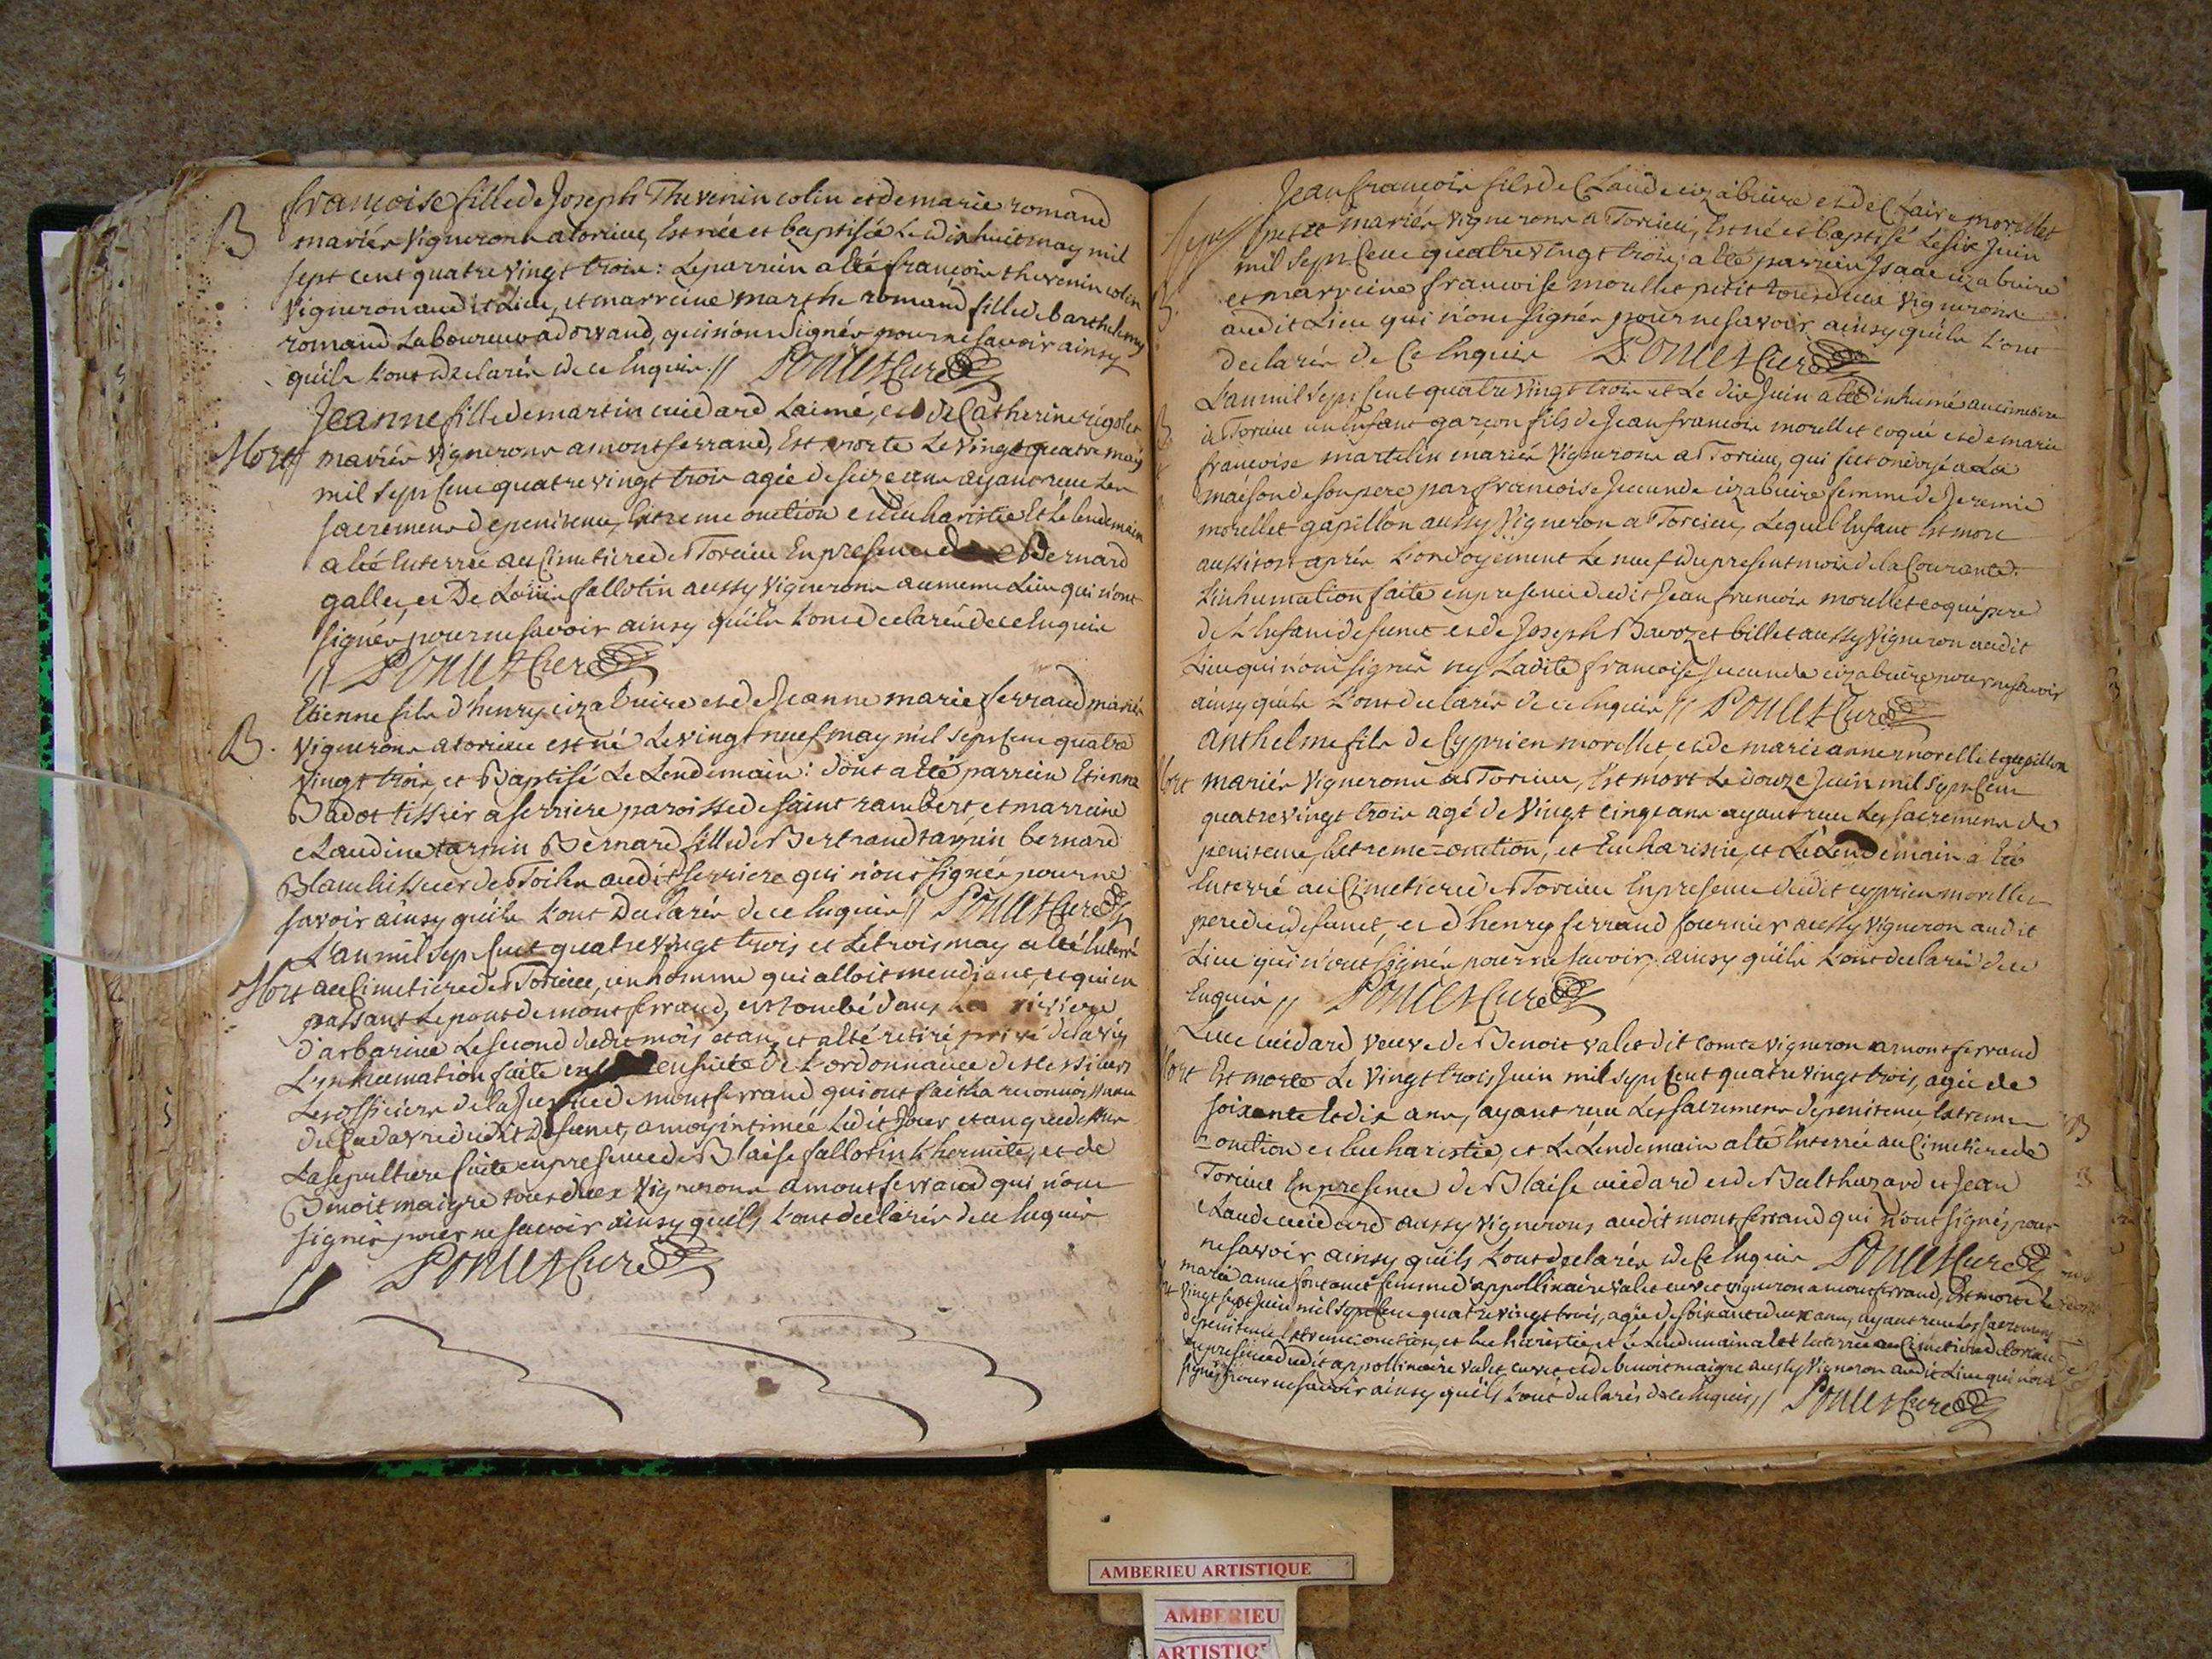 B
françoise fille de Joseph Thevenin colin et de marie romand
mariés vignerons a torcieu, Est née et baptisée Le dix huit may mil
sept cent quatre vingt trois : Le parrein a Eté françois thevenin colin
vigneron audit Lieu, et marreine marthe romand fille de barthelemy
romand Laboureur a dorvand, qui n'ont Signés pour ne savoir ainsy
qu'ils L'ont declarés de ce Enquis // Poncet Curé
Mort
Jeanne fille de martin cuidard Lainé, et de Catherine rigolet
mariés vignerons a montferrand, Est morte Le vingt quatre may
mil Sept Cent quatre vingt trois agée de seize ans ayant receu Les
sacremens de penitence, Extreme onction et Eucharistie Et le lendemain
a Eté Enterrée au Cimetiere de Torcieu En presence de Bernard
gallet, et De Loüis fallotin aussy vignerons au meme Lieu qui n'ont
signés pour ne savoir ainsy qu'ils L'ont declarés de ce Enquis
// Poncet Curé
B.
Etienne fils d'henry cizabuire et de Jeanne marie ferrand mariés
vignerons a torcieu est né Le vingt neuf may mil Sept Cent quatre
vingt trois, et Baptisé Le Lendemain : dont a Eté parrein Etienne
Badot tissier a serriere paroisse de saint rambert et marreine
Claudine tarpin Bernard fille de Bertrand tarpin bernard
Blanchisseur de Toiles audit serriere qui n'ont signés pour ne
savoir ainsy qu'ils L'ont Declarés de ce Enquis // Poncet Curé
Mort
L'an mil Sept Cent quatre vingt trois et Le trois may a Eté Enterré
au Cimetiere de Torcieu, un homme qui alloit mendiant, et qui en
passant Le pont de montferrand, est tombé dans La riviere
d'arbarine Le second dudit mois et an, et a Eté retiré privé de la vie,
L'inhumation faite ensuite de L'ordonnance de Messieurs
Les officiers de la Justice de montferrand qui ont fait La reconnoissance
du Cadavre dudit Defunct, a moy intimée Ledit Jour et an que dessus
La sepulture faite en presence de Blaise fallotin L'hermite, et de
Benoit maigre tous deux vignerons a montferrand qui n'ont
signés pour ne savoir ainsy qu'ils L'ont declarés de ce Enquis
// Poncet Curé
Jean françois fils de Claude cizabuire et de Claire morellet
petit mariés vignerons a Torcieu, Est né et baptisé Le six Juin
mil Sept Cent quatre vingt trois, a Eté parrein Isaac cizabuire
B.
et marreine françoise moullet petit tous deux vignerons
audit Lieu qui n'ont signés pour ne savoir ainsy qu'ils L'ont
declarés de Ce Enquis Poncet Curé
L'an mil Sept Cent quatre vingt trois et Le dix Juin a Eté inhumé au cimetiere
à Torcieu un Enfant garçon fils de Jean françois morellet coqui et de marie
françoise martelin mariés vignerons a Torcieu, qui fut ondoyé a La
maison de son pere par françoise Jucunde cizabuire femme de Jeremie
morellet gapillon aussy vigneron a Torcieu, Lequel Enfant Est mort
aussitost après L'ondoyement Le neuf du present mois de la Courante.
L'inhumation faite en presence dudit Jean françois morellet coqui pere
de L'Enfant defunct et de Joseph Bavozet billet aussy vigneron audit
Lieu qui n'ont signés ny Ladite françoise Jucunde cizabuire pour ne savoir
ainsy qu'ils L'ont declarés de ce Enquis // Poncet Curé
Mort
anthelme fils de Cyprien morellet, et de marie anne morellet gapillon
mariés vignerons à Torcieu, Est mort Le douze Juin mil Sept Cent
quatre vingt trois agé de vingt cinq ans ayant receu Les sacremens de
penitence, Extreme-onction, et Eucharistie, et Le Lendemain a Eté
Enterré au Cimetiere de Torcieu En presence dudit cyprien morellet
pere du defunct, et d'henry ferrand fournier aussy vigneron audit
Lieu qui n'ont signés pour ne savoir, ainsy qu'ils L'ont declarés de ce
Enquis // Poncet Curé
Mort
Luce cuidard veuve de Benoit valet dit comte vigneron a montferrand
Est morte Le vingt trois Juin mil Sept Cent quatre vingt trois, agée de
soixante Et dix ans, ayant receu Les sacremens de penitence, Extreme
-onction et Eucharistie, et Le Lendemain a Eté Enterrée au Cimetiere de
Torcieu En presence de Blaise cuidard et de Balthazard et Jean
Claude cuidard aussy vignerons audit montferrand qui n'ont signés pour
ne savoir ainsy qu'ils L'ont declarés de Ce Enquis Poncet Curé
marie anne fontanet femme d'appollinaire valet vigneron a montferrand, Est morte Le
vingt sept Juin mil Sept Cent quatre vingt trois, agée de soixante deux ans, ayant receu Les sacremens
de penitence Extreme onction, et Eucharistie, et Le Lendemain a Eté Enterrée au Cimetiere de torcieu
en presence dudit appollinaire valet et de benoit maigre aussy vigneron audit Lieu qui n'ont
signés pour ne savoir ainsy qu'ils L'ont declarés de ce Enquis // Poncet Curé
AMBERIEU ARTISTIQUE
AMBERIEU
ARTISTIQ